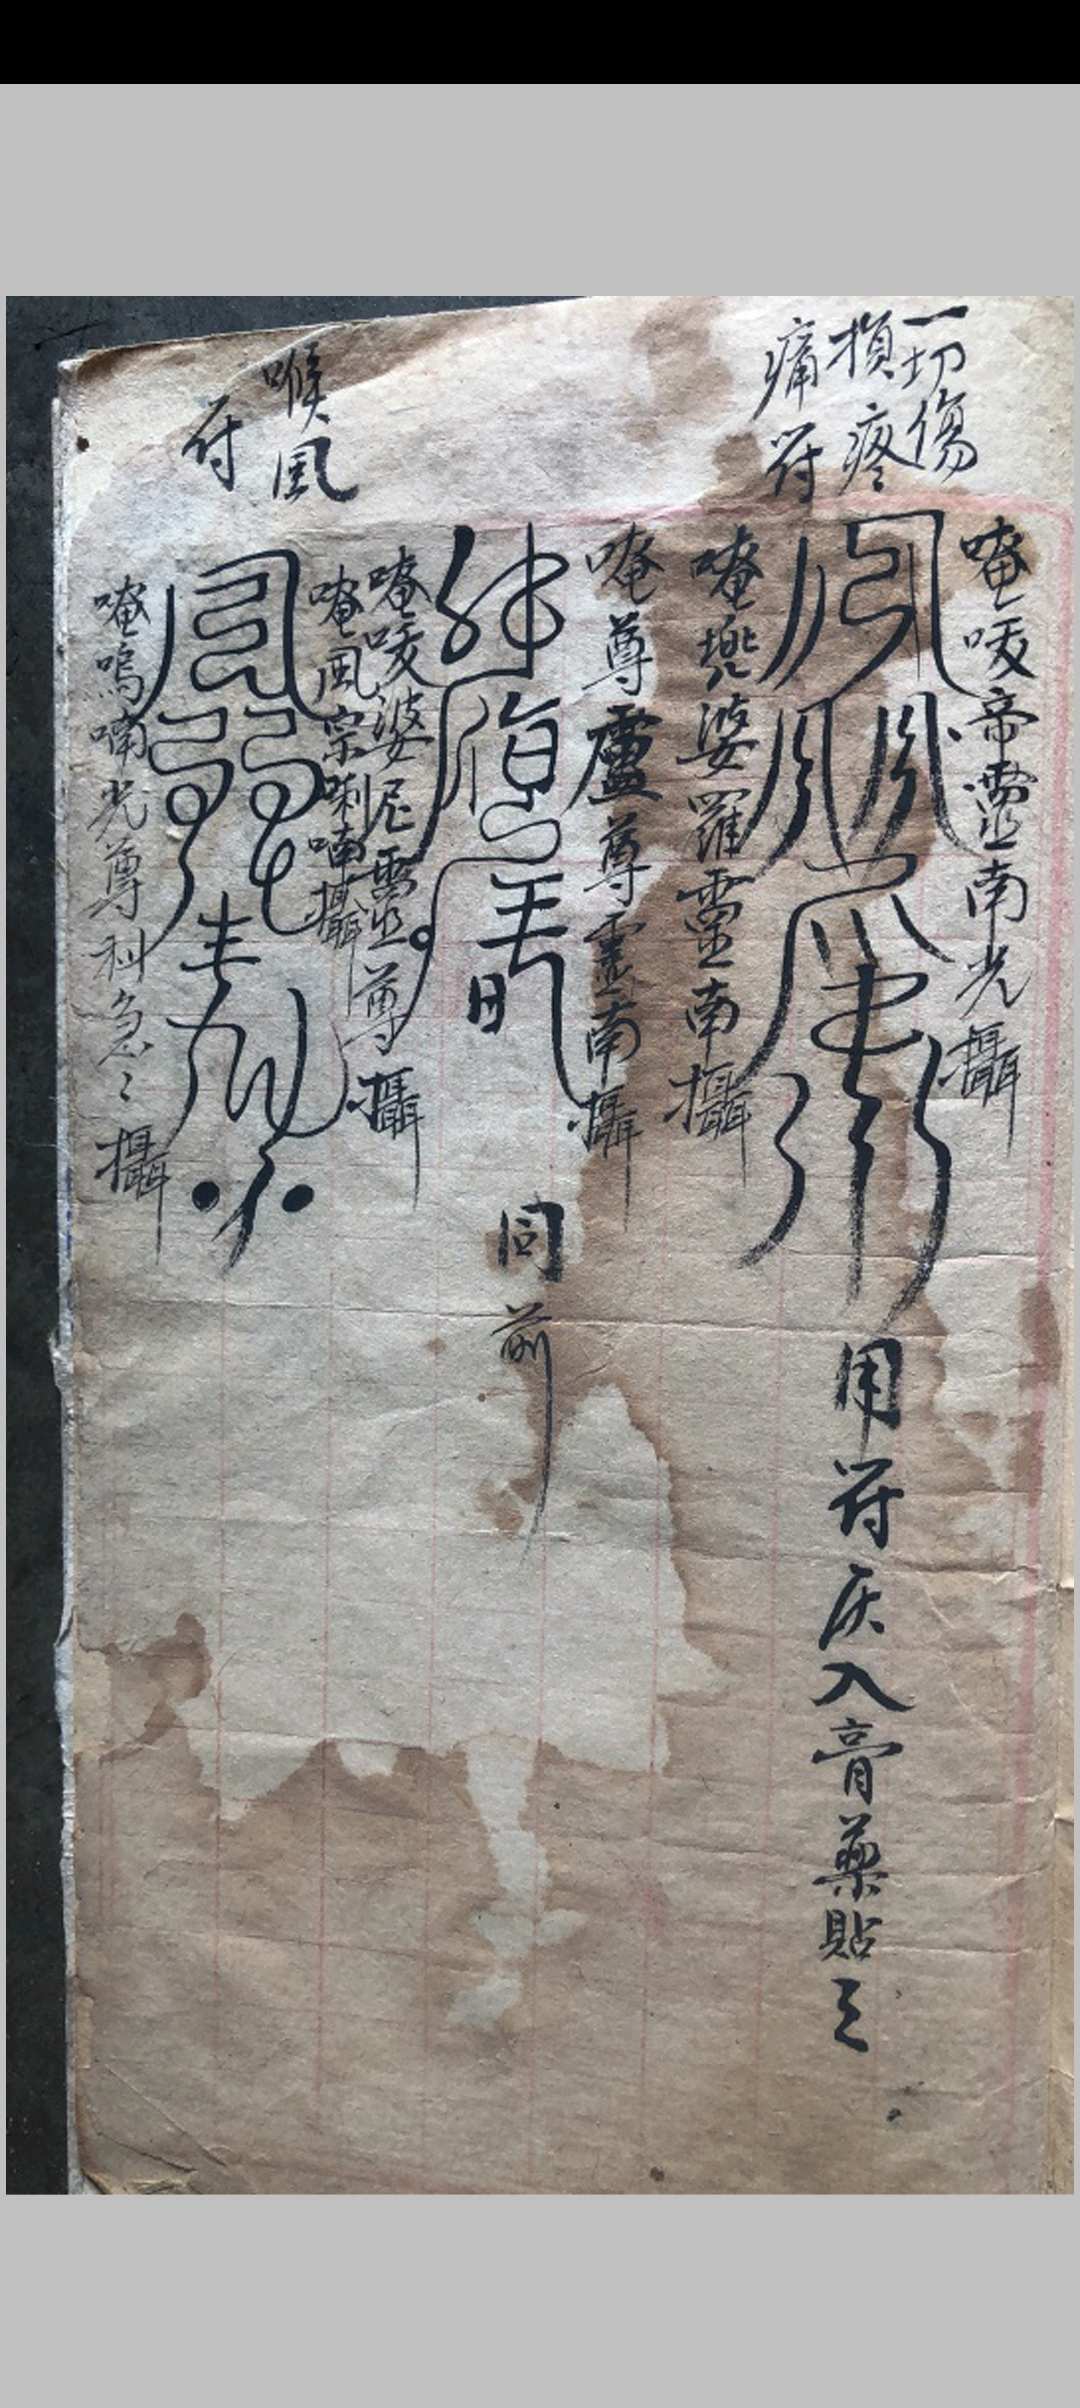 一切傷
損疼
痛符
唵㖿帝靈南光攝
用符灰入膏藥貼之
唵婆羅靈南攝
唵尊盧尊靈南攝
同前
喉風
符
唵㖿婆尼靈尊攝
唵風宗唎喃攝
唵嗚喃光尊科急々攝